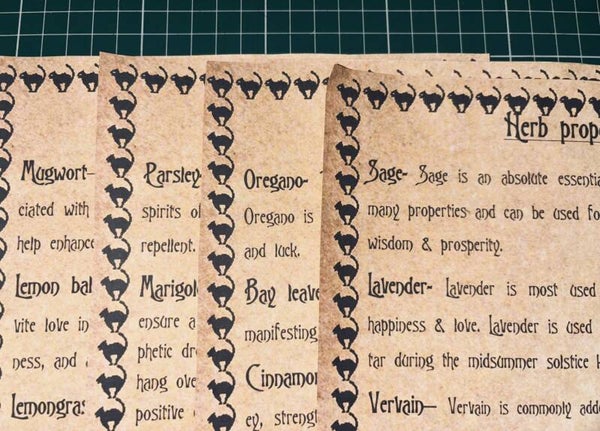 Mugwort-
ciated with
help enhance
Lemon bal
vite love in
ness, and
Lemongras
Parsley
spirits of
repellent.
Marigol
ensure a
phetic dr
hang ove
positive
Oregano-
Oregano is
and luck.
Bay leave
manifesting
Cinnamon
ey, strengt
Herb prope
Sage- Sage is an absolute essentia
many properties and can be used fo
wisdom & prosperity.
Lavender- Lavender is most used
happiness & love. Lavender is used
tar during the midsummer solstice
Vervain- Vervain is commonly adde